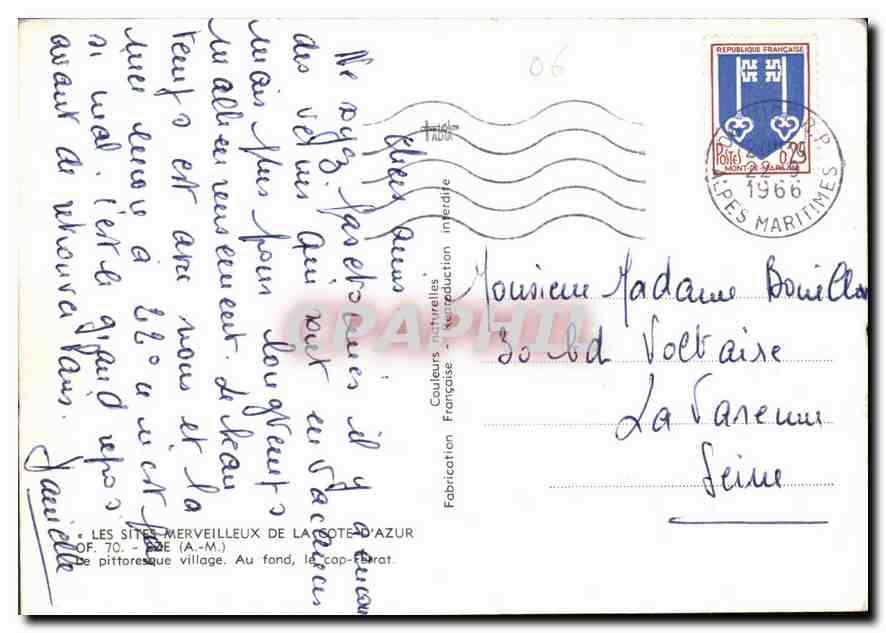 Chers amis
Ne soyez pas etonnés il y a encor
des veinards qui sont en vacances
mais plus pour longtemps
malheureusement. Le beau
temps est avec nous et la
mer encore à 22° ce n'est pas
si mal. c'est le grand repos
avant de retrouver Paris.
Danielle
06
REPUBLIQUE FRANÇAISE
POSTES 0,25
MONT-DE-MARSAN
R.P.
22-9
1966
ALPES MARITIMES
Monsieur Madame Bouillon
30 bd Voltaire
La Varenne
Seine
CPAPHIL
Couleurs naturelles
Fabrication Française - Reproduction interdite
« LES SITES MERVEILLEUX DE LA COTE D'AZUR
OF. 70. - EZE (A.-M.)
Le pittoresque village. Au fond, le cap-Ferrat.